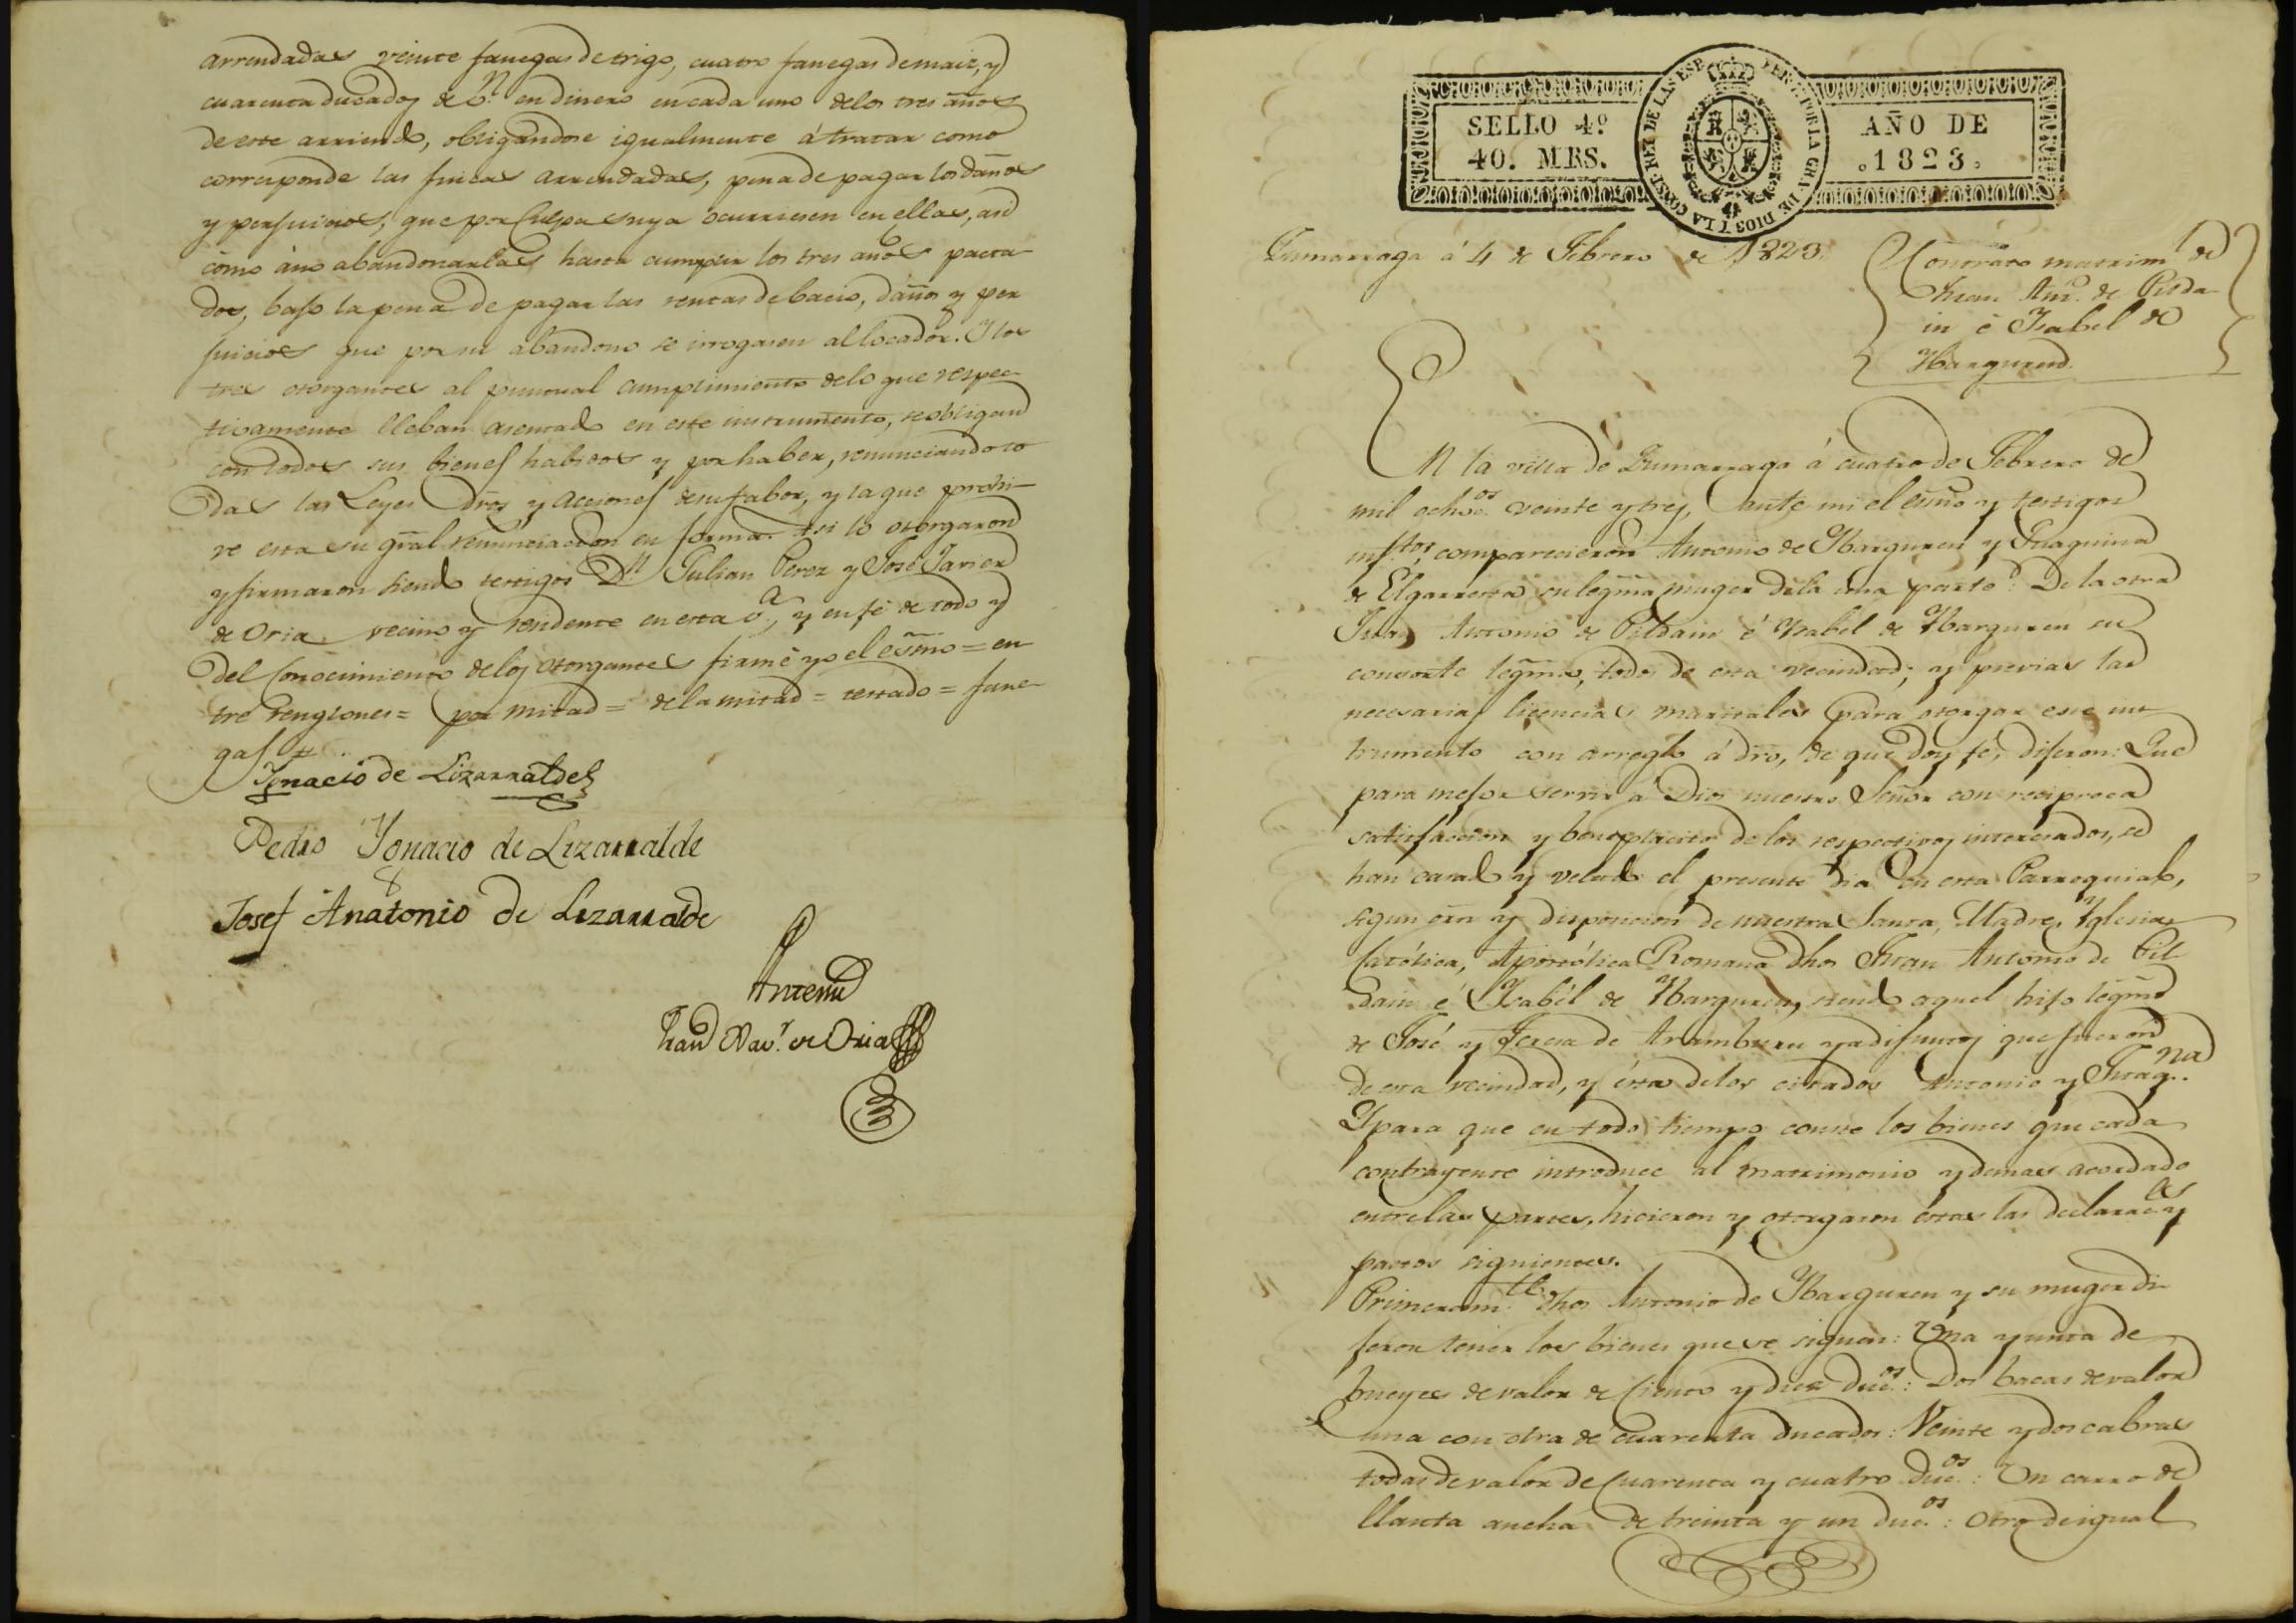 arrendadas veinte fanegas de trigo, cuatro fanegas de maiz, y
cuarenta ducados de v.n en dinero en cada uno de los tres años
de este arriendo, obligandose igualmente á tratar como
corresponde las fincas arrendadas, pena de pagar los daños
y perjuicios, que por culpa suya ocurriesen en ellas, asi
como áno abandonarlas hasta cumplir los tres años pacta-
dos, bajo la pena de pagar las rentas de bacio, daños y per
juicios que por su abandono se irrogasen al locador. Y los
tres otorgantes al puntual cumplimiento de lo que respec-
tivamente lleban asentado en este instrumento, se obligan
con todos sus bienes habidos y por haber, renunciando to
das las Leyes dros y acciones de su fabor, y la que prohi-
ve esta su gral renunciacion en forma. Asi lo otorgaron
y firmaron siendo testigos D.n Julian Perez y José Javier
de Oria vecino y residente en esta v.a, y en fé de todo y
del conocimiento de los otorgantes firmé yo el esño = en
tre renglones = por mitad = de la mitad = testado = fane-
gas =
Ignacio de Lizarralde
Pedro Ignacio de Lizarralde
Josef Anatonio de Lizarralde
Antemi
Fran.co Xav.r de Oria
SELLO 4º
40. MRS.
AÑO DE
1823.
FER. 7. POR LA GRA. DE DIOS Y LA CONST. REY DE LAS ESP.
Zumarraga á 4 de Febrero de 1823.
Contrato matrim.l de
Juan Ant.o de Pilda
in é Isabel de
Ybarguren
En la villa de Zumarraga á cuatro de Febrero de
mil ochoc.os veinte y tres, ante mi el esño y testigos
infr.tos comparecieron Antonio de Ybarguren y Juaquina
de Elgarresta su legma muger de la una parte: De la otra
Juan Antonio de Pildain é Ysabel de Ybarguren su
consorte legma, todos de esta vecindad; y previas las
necesarias licencias maritales para otorgar este ins
trumento con arreglo á dro, de que doy fé, dijeron: Que
para mejor servir á Dios nuestro Señor con reciproca
satisfaccion y beneplacito de los respectivos interesados, se
han casado y velado el presente dia en esta Parroquial,
segun orn y disposicion de nuestra Santa Madre Yglesia
Católica, Apostólica Romana dhos Juan Antonio de Pil-
dain é Ysabél de Ybarguren, siendo aquel hijo legmo
de José y Teresa de Aramburu ya difuntos que fueron
de esta vecindad, y ésta de los citados Antonio y Juaq.na
Y para que en todo tiempo conste los bienes que cada
contrayente introduce al matrimonio y demas acordado
entre las partes, hicieron y otorgaron estas las declarac.es y
pactos siguientes.
Primeram.te dhos Antonio de Ybarguren y su muger di-
jeron tener los bienes que se siguen: Una yunta de
bueyes de valor de ciento y diez duc.os: Dos bacas de valor
una con otra de cuarenta ducados: Veinte y dos cabras
todas de valor de cuarenta y cuatro duc.os: Un carro de
llanta ancha de treinta y un duc.os: Otro de igual